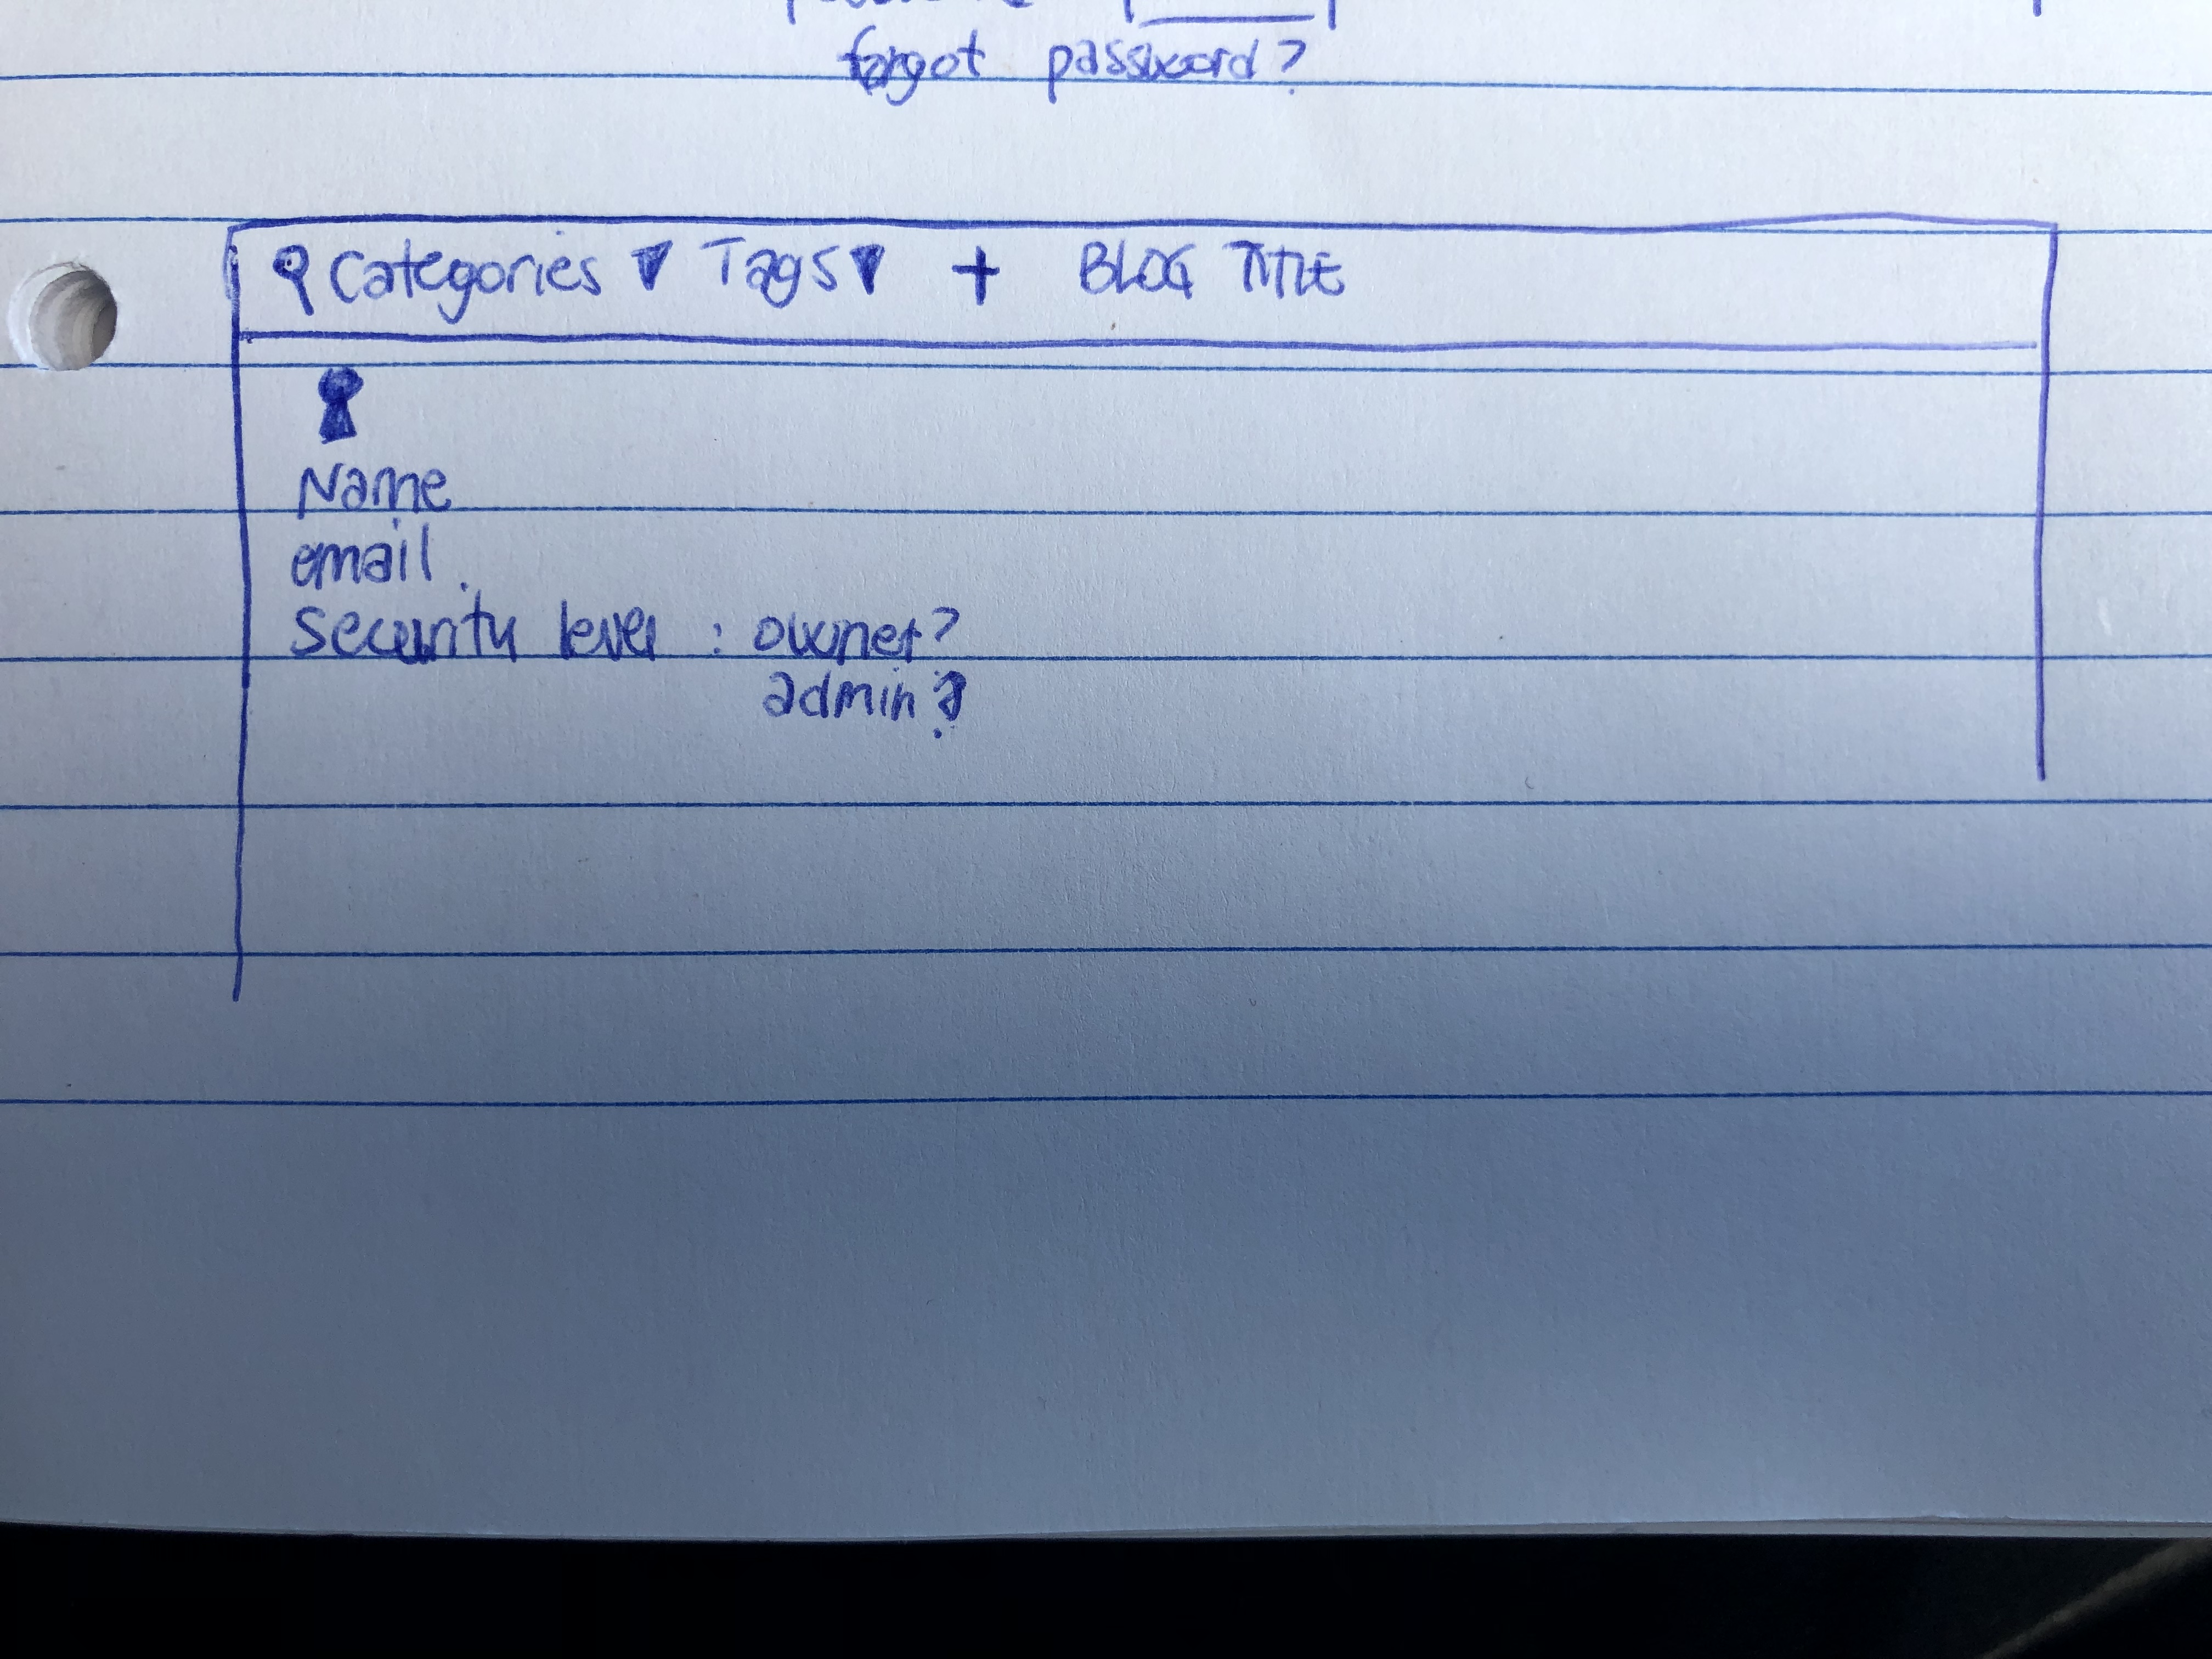 forgot password?
Categories ▼ Tags ▼ + BLOG TITLE
Name
email
Security level : owner?
admin?